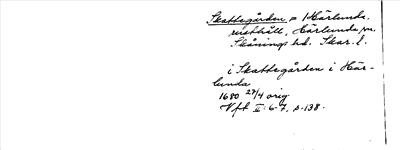 Skattegården = 1 Härlunda,
rusthåll, Härlunda sn,
Skånings hd. Skar. l.
i Skattegården i Här-
lunda
1680 27/4 orig.
Vft II: 6-7, s. 138.